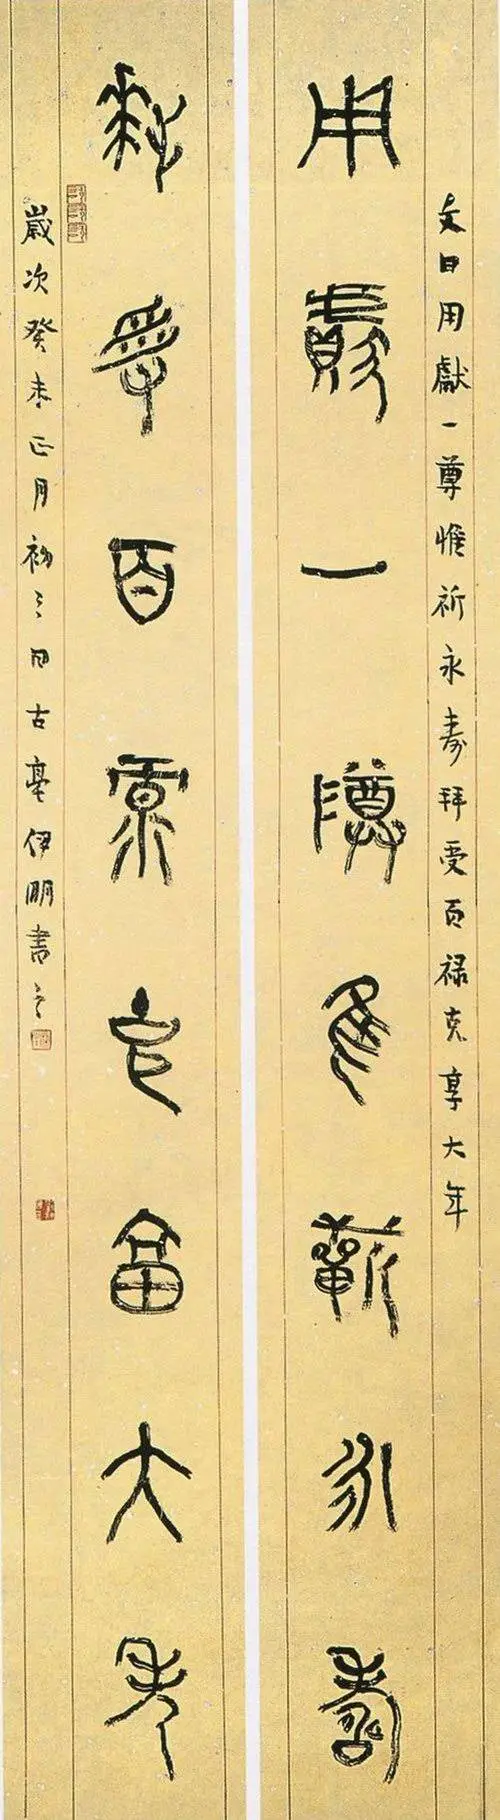 文曰用獻一尊惟祈永壽拜受百禄克享大年
用獻一尊惟祈永壽
拜受百禄克享大年
歲次癸未正月初三日古亳伊朋書之